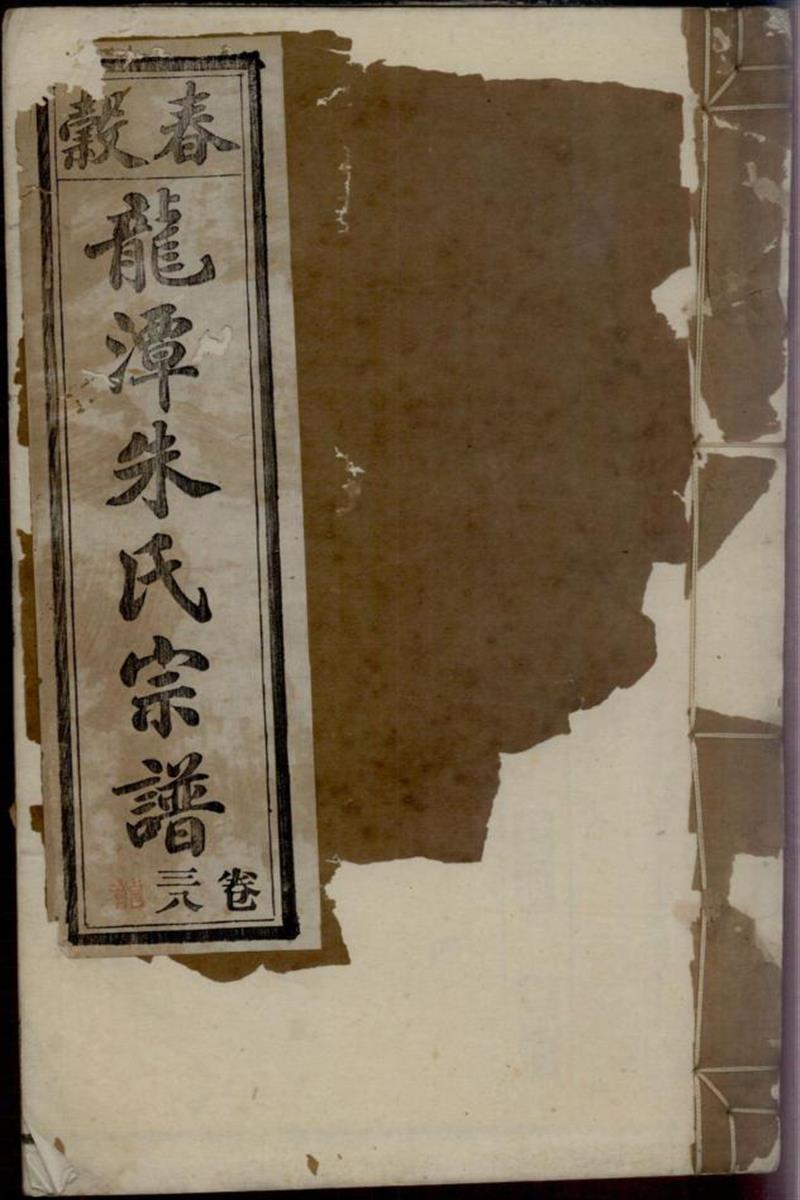 春穀
龍潭朱氏宗譜
卷
三八
龍